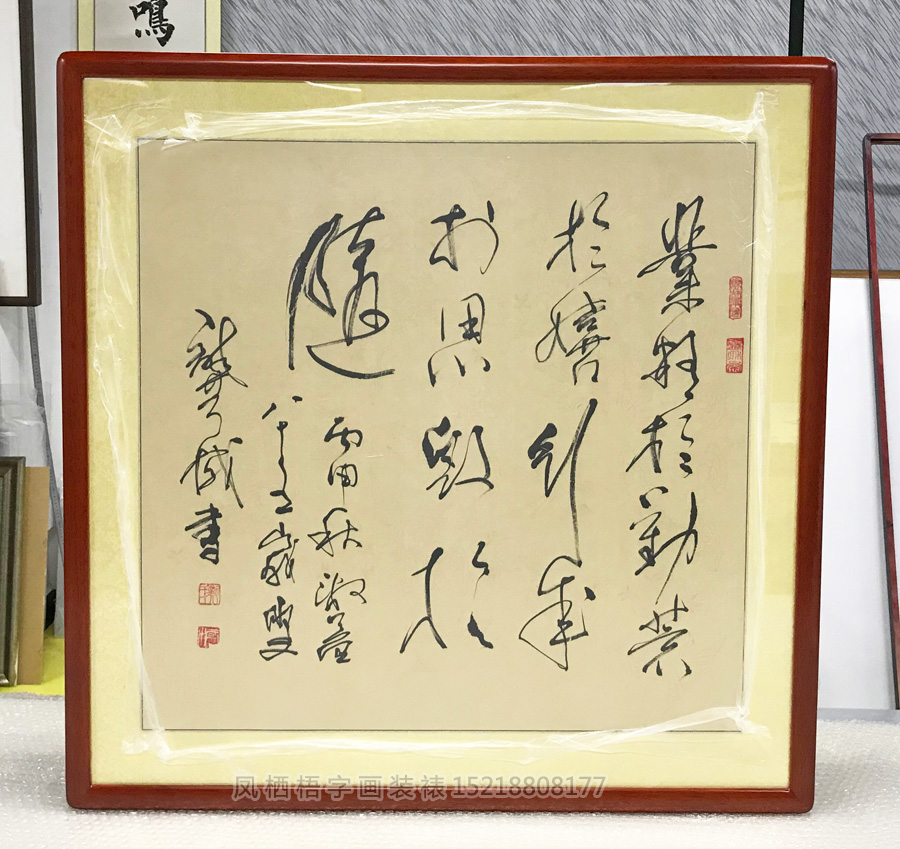 鳴
業精於勤荒
於嬉行成
於思毀於
隨
丙申秋
八十五歲叟
書
凤栖梧字画装裱15218808177